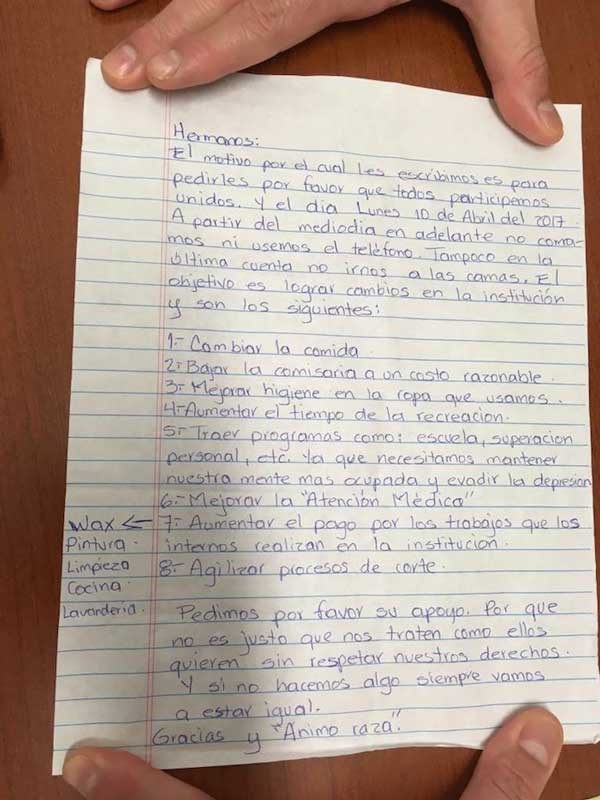 Hermanos:
El motivo por el cual les escribimos es para
pedirles por favor que todos participemos
unidos. Y el dia Lunes 10 de Abril del 2017.
A partir del mediodia en adelante no coma-
mos ni usemos el teléfono. Tampoco en la
última cuenta no irnos a las camas. El
objetivo es lograr cambios en la institución
y son los siguientes:
1.- Cambiar la comida.
2.- Bajar la comisaria a un costo razonable.
3.- Mejorar higiene en la ropa que usamos.
4.- Aumentar el tiempo de la recreacion.
5.- Traer programas como: escuela, superacion
personal, etc. Ya que necesitamos mantener
nuestra mente mas ocupada y evadir la depresion
6.- Mejorar la "Atención Médica"
7.- Aumentar el pago por los trabajos que los
internos realizan en la institucion.
8.- Agilizar procesos de corte.
Wax ←
Pintura.
Limpieza
Cocina.
Lavanderia.
Pedimos por favor su apoyo. Por que
no es justo que nos traten como ellos
quieren sin respetar nuestros derechos.
Y si no hacemos algo siempre vamos
a estar igual.
Gracias y "Animo raza."